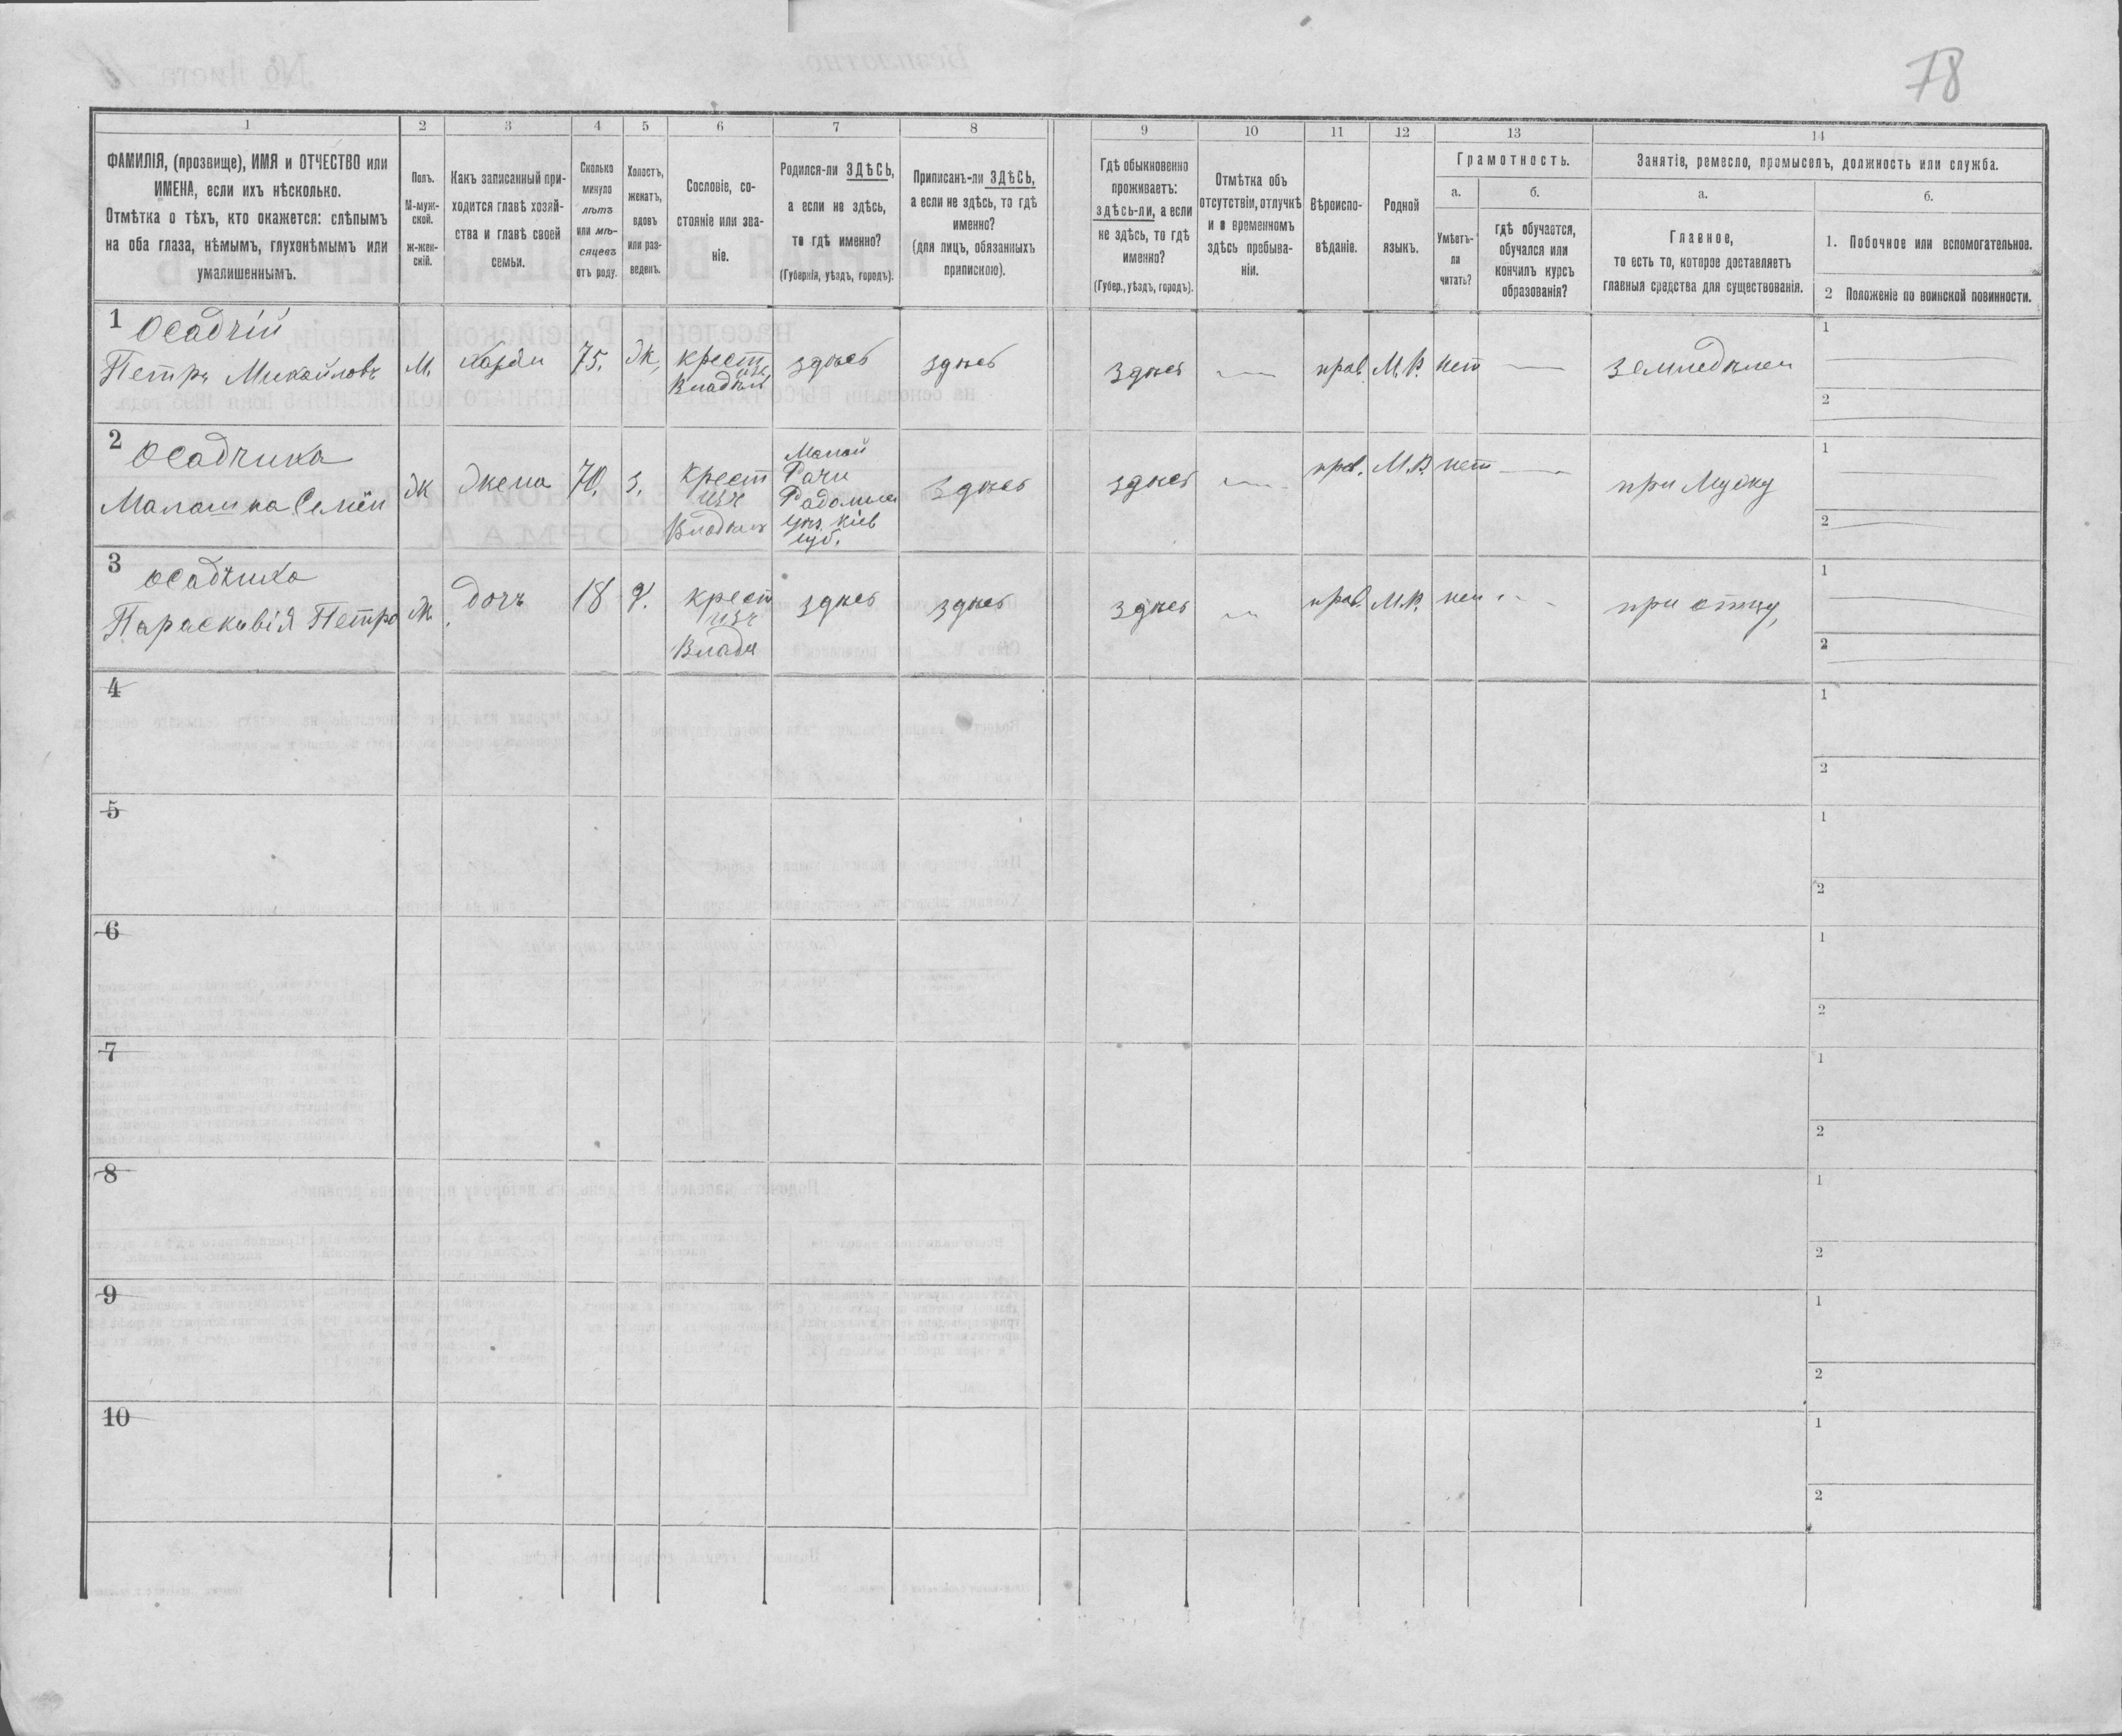 78
1
2
3
4
5
6
7
8
9
10
11
12
13
14
ФАМИЛІЯ, (прозвище), ИМЯ и ОТЧЕСТВО или
ИМЕНА, если ихъ нѣсколько.
Отмѣтка о тѣхъ, кто окажется: слѣпымъ
на оба глаза, нѣмымъ, глухонѣмымъ или
умалишеннымъ.
Полъ.
М-муж-
ской.
ж-жен-
скій.
Какъ записанный при-
ходится главѣ хозяй-
ства и главѣ своей
семьи.
Сколько
минуло
лѣтъ
или мѣ-
сяцевъ
отъ роду.
Холостъ,
женатъ,
вдовъ
или раз-
веденъ.
Сословіе, со-
стояніе или зва-
ніе.
Родился-ли ЗДѢСЬ,
а если не здѣсь,
то гдѣ именно?
(Губернія, уѣздъ, городъ).
Приписанъ-ли ЗДѢСЬ,
а если не здѣсь, то гдѣ
именно?
(для лицъ, обязанныхъ
припискою).
Гдѣ обыкновенно
проживаетъ:
здѣсь-ли, а если
не здѣсь, то гдѣ
именно?
(Губер., уѣздъ, городъ).
Отмѣтка объ
отсутствіи, отлучкѣ
и о временномъ
здѣсь пребыва-
ніи.
Вѣроиспо-
вѣданіе.
Родной
языкъ.
Грамотность.
а.
Умѣетъ-
ли
читать?
б.
гдѣ обучается,
обучался или
кончилъ курсъ
образованія?
Занятіе, ремесло, промыселъ, должность или служба.
а.
Главное,
то есть то, которое доставляетъ
главныя средства для существованія.
б.
1. Побочное или вспомогательное.
2 Положеніе по воинской повинности.
1 Осадчій
Петръ Михайловъ М. 75. Ж, крест здѣсь здѣсь здѣсь — прав М.Р. нет — земледѣлец
изъ
Владѣл
1
2
2 Осадчика
Малашка Семён Ж Жена 70. З. Крест
изъ
Владѣл
Малой
Рачи
Радомыс
уѣз. Кіев
губ.
здѣсь здѣсь — прав. М.Р. нет — при мужу
1
2
3 Осадчика
Параскивія Петро Ж. дочъ 18 Д. крест здѣсь здѣсь здѣсь — прав. М.Р. нет при отцу,
изъ
Владѣ
1
2
4
1
2
5
1
2
6
1
2
7
1
2
8
1
2
9
1
2
10
1
2